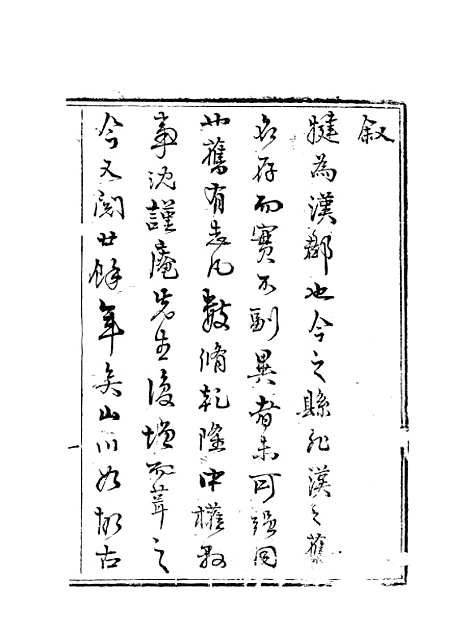 叙
犍為漢郡也今之縣非漢之舊
名存而實不副異者未可强同
也舊有志凡數脩乾隆中權縣
事沈謹庵先生復增而葺之
今又閲廿餘年矣山川如故古